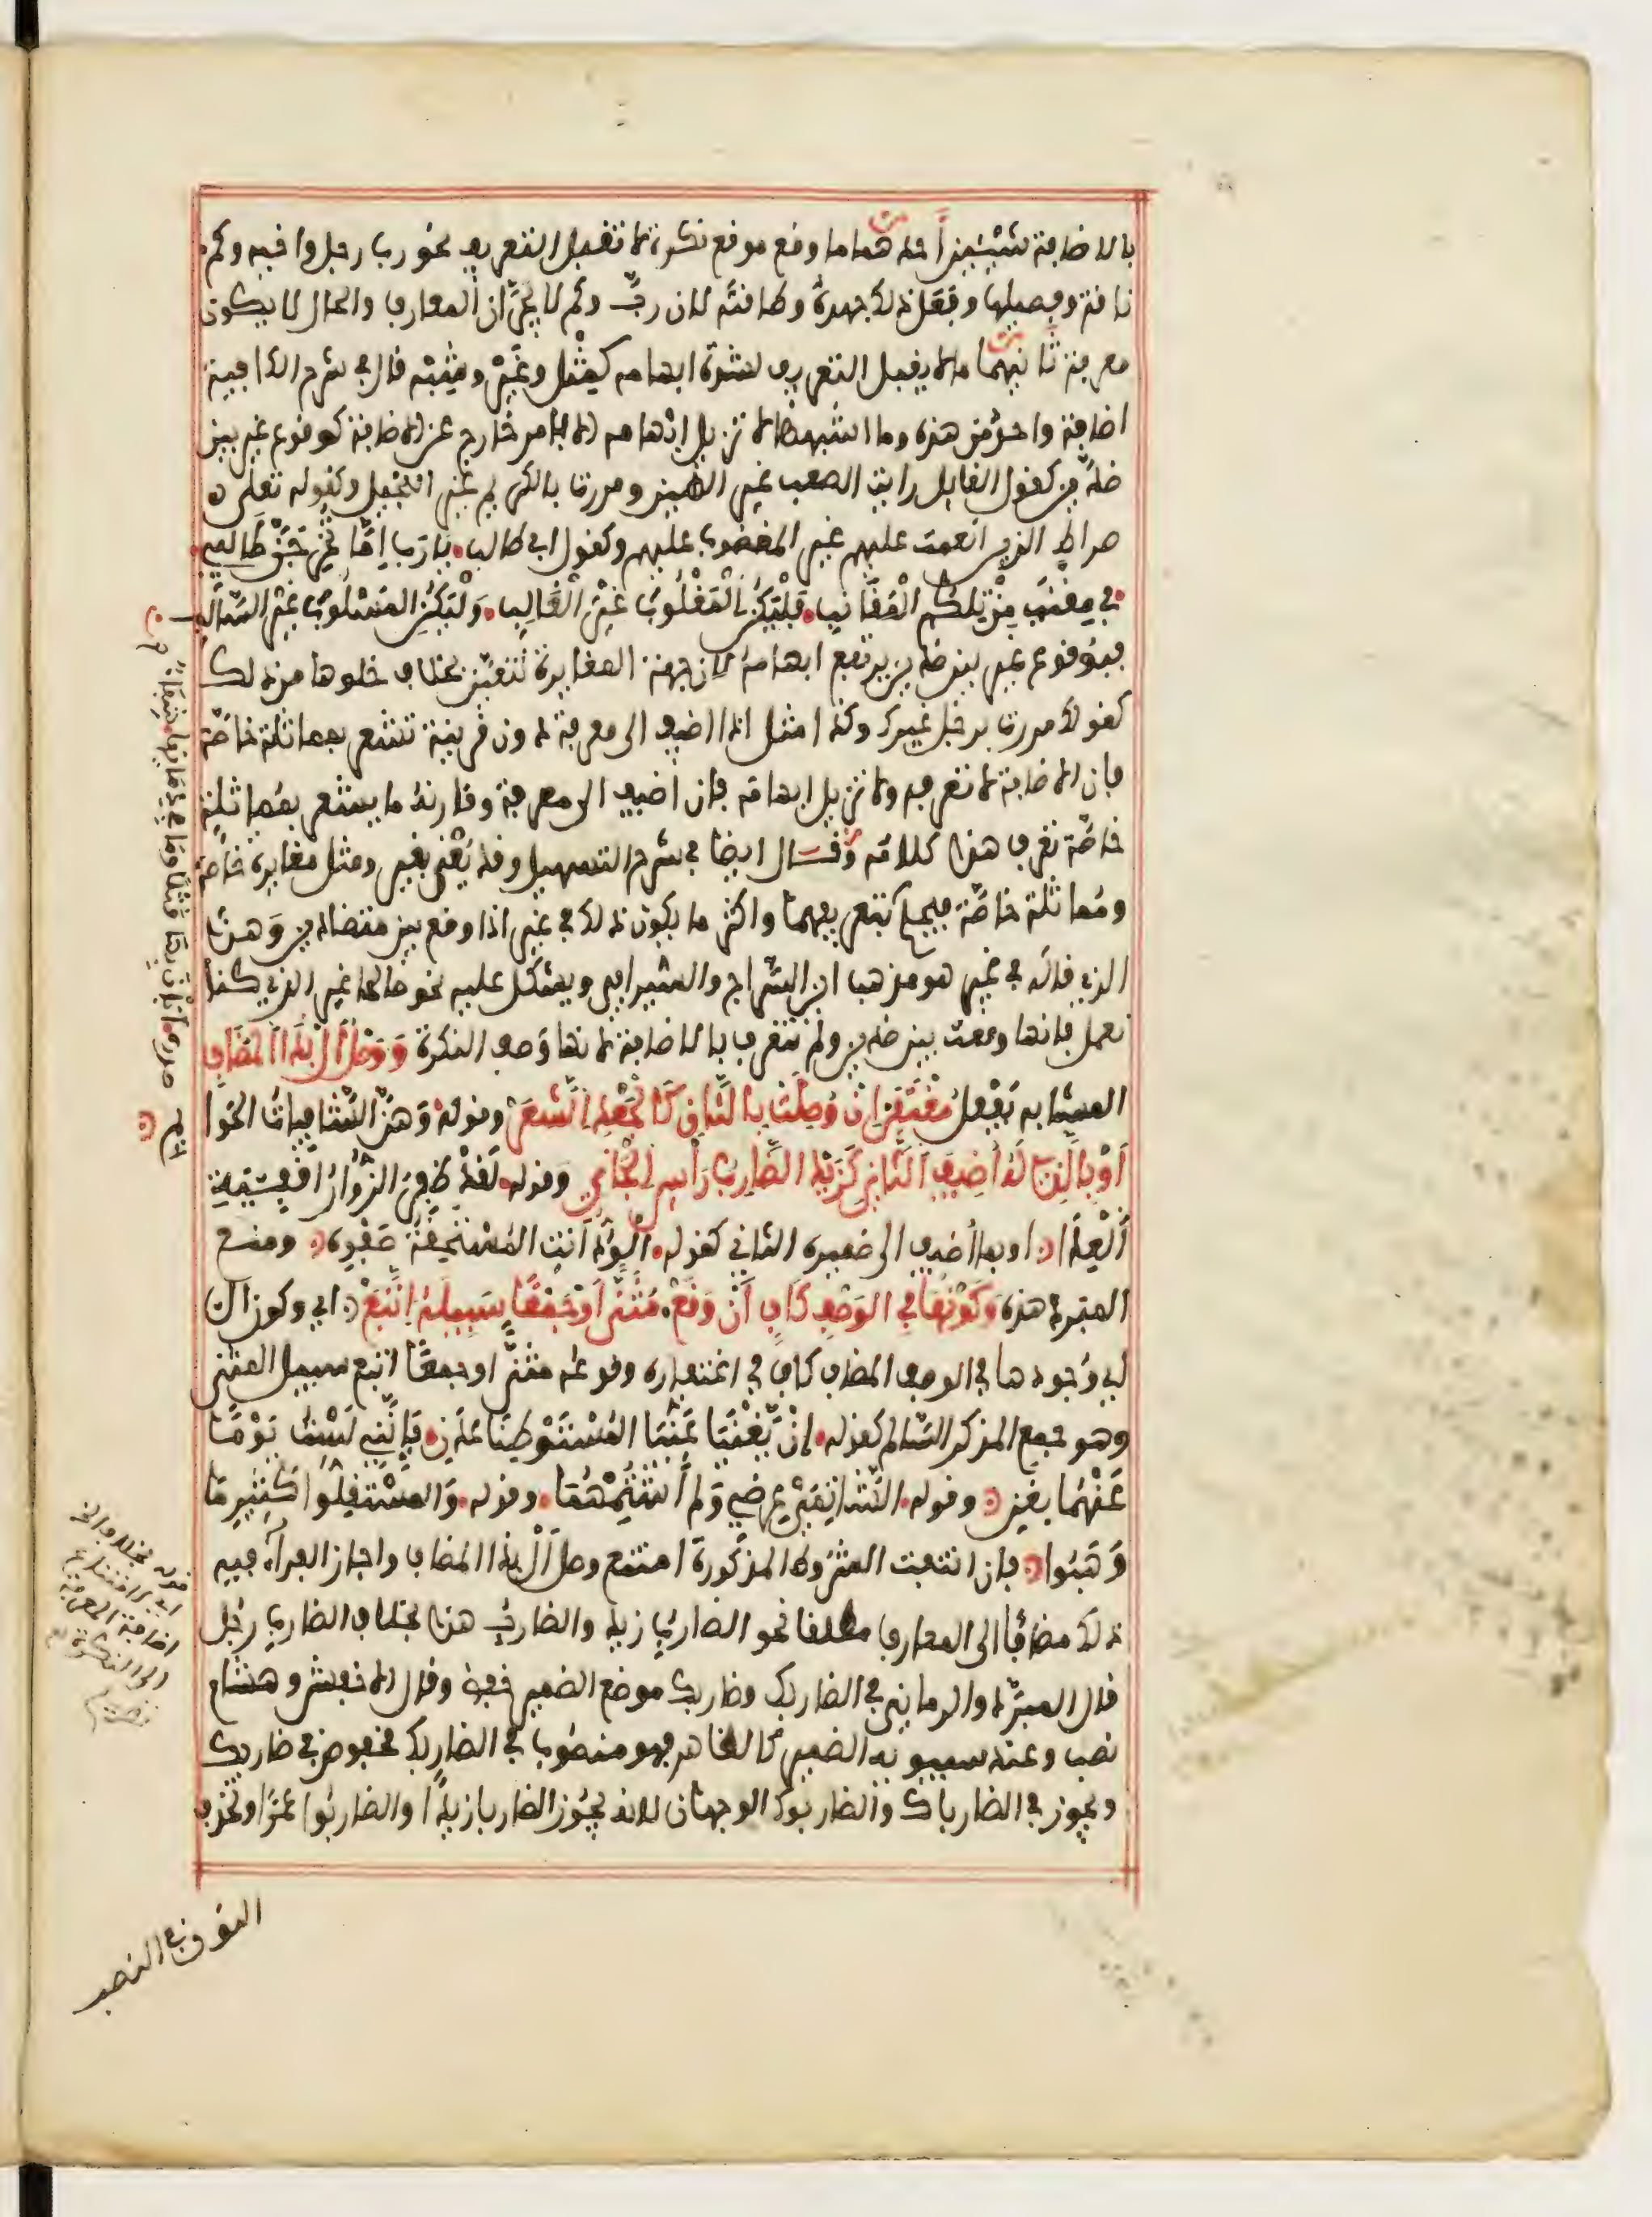 بالاضافة شيئين أحدهما ما وقع موقع نكرة لا تقبل التعريف نحو رب رجل واخيه وكم
ناقة وفصيلها وفعل ذلك جهده وطاقته لان رب وكم لا يجران المعارف والحال لا يكون
معرفة ثانيهما ما لا يقبل التعريف لشدة ابهامه كمثل وغير وشبه قال في شرح الكافية
اضافة واحد من هذه وما اشبهها لا تزيل ابهامه الا بامر خارج عن الاضافة كوقوع غير بين
ضدين كقول القايل رايت الصعب غير الهين ومررت بالكريم غير البخيل وكقوله تعلى
صراط الذين انعمت عليهم غير المغضوب عليهم وكقول ابي طالب يا رب إما تخرجن طالبي
في مقنب من تلكم المقانب فليكن المغلوب غير الغالب وليكن المسلوب غير السالب
فبوقوع غير بين ضدين يرتفع ابهامه لان جهة المغايرة تتعين بخلاف خلوها من ذلك
كقولك مررت برجل غيرك وكذا مثل اذا اضيف الى معرفة دون قرينة تشعر بمماثلة خاصة
فان الاضافة لا تعرفه ولا تزيل ابهامه فان اضيف الى معرفة وقارنه ما يشعر بمماثلة
خاصة تعرف هذا كلامه وقال ايضا في شرح التسهيل وقد يعنى بغير ومثل مغايرة خاصة
ومماثلة خاصة فيحكم بتعريفهما واكثر ما يكون ذلك في غير اذا وقع بين متضادين وهذا
الذي قاله في غير هو مذهب ابن السراج والسيرافي ويشكل عليه نحو صالحا غير الذي كنا
نعمل فانها وقعت بين ضدين ولم تتعرف بالاضافة لانها وصف النكرة ووصل أل بذا المضاف
المشابه يفعل مغتفر إن وصلت بالثان كالجعد الشعر وقوله وهن الشافيات الحوا
أو بالذي له أضيف الثاني كزيد الضارب رأس الجاني وقوله لقد ظفر الزوار أقفية
العدا او بما أضيف الى ضميره الثاني كقوله الود أنت المستحقة صفوه ومنع
المبرد هذه وكونها في الوصف كاف أن وقع مثنى أو جمعا سبيله اتبع اي وكون ال
اي وجودها في الوصف المضاف كاف في اغتفاره وقوعه مثنى او جمعا اتبع سبيل المثنى
وهو جمع المذكر السالم كقوله إن يغنيا عني المستوطنا عدن فإنني لست يوما
عنهما بغني وقوله الشاتمي عرضي ولم أشتمهما وقوله والمستقلوا كثير ما
وهبوا فان انتفت الشروط المذكورة امتنع وصل أل بذا المضاف واجاز الفراء فيه
ذلك مضافا الى المعارف مطلقا نحو الضارب زيد والضارب هذا بخلاف الضارب رجل
قال المبرد والرماني في الضاربك وضاربك موضع الضمير خفض وقال الاخفش وهشام
نصب وعند سيبويه الضمير كالظاهر فهو منصوب في الضاربك مخفوض في ضاربك
ويجوز في الضارباك والضاربوك الوجهان لانه يجوز الضاربا زيدا والضاربوا عمرا وتحذف
النون في النصب
قوله بخلاف الخ
اي امتناع
اضافة المعرفة
الى النكرة